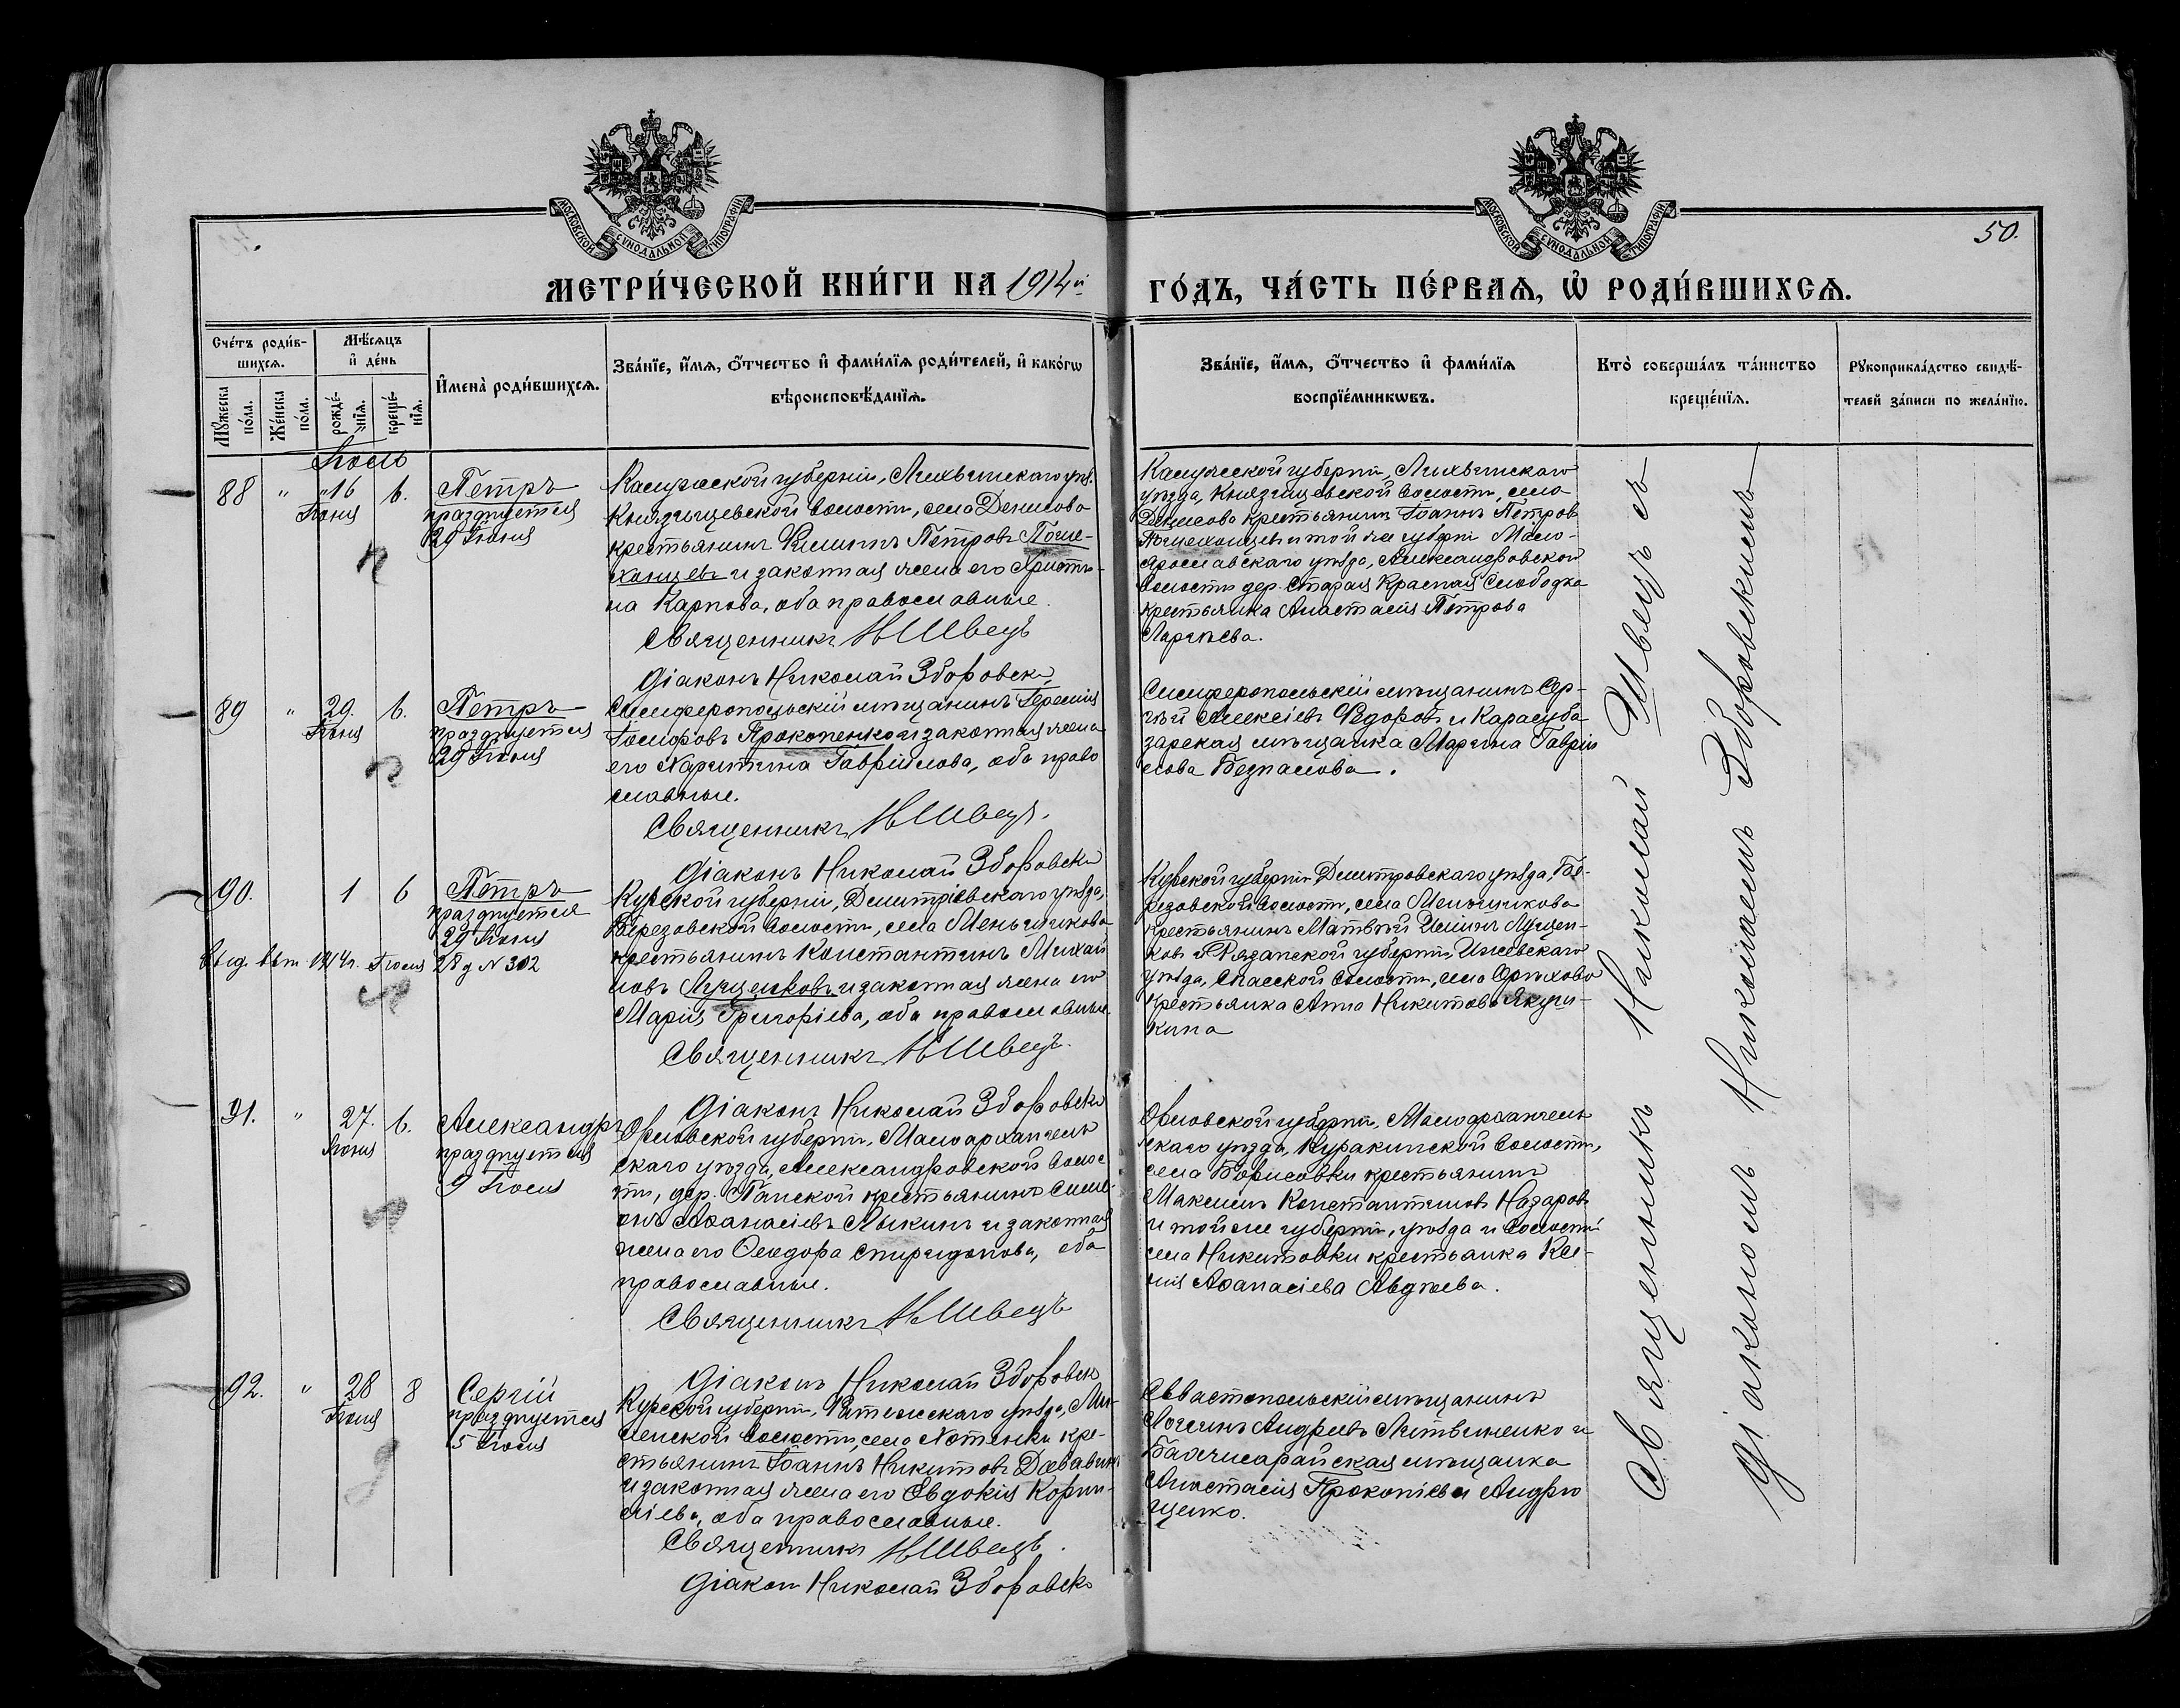 МОСКОВСКОЙ СѴНОДАЛЬНОЙ ТИПОГРАФІИ
МОСКОВСКОЙ СѴНОДАЛЬНОЙ ТИПОГРАФІИ
50.
МЕТРИ́ЧЕСКОЙ КНИ́ГИ НА 1914й ГО́ДЪ, ЧА́СТЬ ПЕ́РВАѦ, Ѡ҆ РОДИ́ВШИХСѦ.
Сче́тъ роди́в-
шихсѧ.
Мѣ́сѧцъ
и҆ де́нь
Мꙋжеска по́ла.
Же́нска по́ла.
рожде́-
нїѧ.
креще́-
нїѧ.
И҆мена̀ роди́вшихсѧ.
Зва́нїе, и҆́мѧ, ѻ҆́тчество и҆ фами́лїѧ роди́телей, и҆ како́гѡ
вѣроисповѣ́данїѧ.
Зва́нїе, и҆́мѧ, ѻ҆́тчество и҆ фами́лїѧ
воспрїе́мникѡвъ.
Кто̀ соверша́лъ та́инство
креще́нїѧ.
Рꙋкоприкла́дство свидѣ́-
телей за́писи по жела́нїю.
Іюль
88 " 16 6. Петръ
Іюня
празднуется
29 Іюня
Калужской губерніи, Лихвинскаго уѣз.
Князищевской волости, села Денисова
крестьянинъ Филиппъ Петровъ Поше-
хонцевъ и законная жена его Христи-
на Карпова, оба православные.
Священникъ Н Швецъ
Діаконъ Николай Зборовскі
Калужской губерніи, Лихвинскаго
уѣзда, Князищевской волости, села
Денисова крестьянинъ Іоаннъ Петровъ
Пошехонцевъ и той же губерніи Мало-
ярославскаго уѣзда, Александровской
волости дер. Старая Красная Слободка
крестьянка Анастасія Петрова
89 " 29. 6. Петръ
Іюня
празднуется
29 Іюня
Симферопольскій мѣщанинъ Геремія
Іосифовъ Прокопенко и законная жена
его Харитина Гавріилова, оба право
славные.
Священникъ Н Швецъ.
Діаконъ Николай Зборовскі
Симферопольскій мѣщанинъ Сер-
гѣй Алексіевъ Ѳедоровъ и Карасуба
зарская мѣщанка Марина Гавріи
лова Безпалова.
90. 1 6 Петръ
празднуется
29 Іюня
Выд. вып. 1914г. Іюля 28 д N 302
Курской губерніи, Дмитріевскаго уѣзда,
Березовской волости, села Меньшикова
крестьянинъ Константинъ Михаи
ловъ Лущенковъ и законная жена его
Марія Григоріева, оба православные
Священникъ Н Швецъ.
Діаконъ Николай Зборовскі
Курской губерніи Дмитровскаго уѣзда, Бе-
резовской волости, села Меньшикова
крестьянинъ Матвѣй Лущен-
ковъ и Рязанской губерніи,
уѣзда, Спасской волости, села Орѣхово
крестьянка Анна Никитова Якуш-
кина
91. " 27. 6. Александръ
Іюня
празднуется
9 Іюля
Орловской губерніи, Малоархангель
скаго уѣзда, Александровской волос
ти, дер. Панской крестьянинъ Симе-
онъ Аѳанасіевъ Лыкинъ и законная
жена его Ѳеодора Спиридонова, оба
православные.
Священникъ Н Швецъ
Діаконъ Николай Зборовскі
Орловской губерніи, Малоархангель
скаго уѣзда, Куракинской волости,
села Борисовки крестьянинъ
Максимъ Константиновъ Назаровъ
и той же губерніи, уѣзда и волости
села Никитовки крестьянка Ксе-
нія Аѳанасіева Авдѣева.
92. " 28 8 Сергій
Іюня
празднуется
5 Іюля
Курской губерніи, Рыльскаго уѣзда,
волости, села крe-
стьянинъ Іоаннъ Никитовъ
и законная жена его Евдокія Корни-
ліева, оба православные.
Священникъ Н Швецъ.
Діаконъ Николай Зборовскі
Севастопольскій мѣщанинъ
Логгинъ Андреевъ Литвиненко и
Бахчисарайская мѣщанка
Анастасія Прокопіева Андрю
щенко.
Священникъ Николай Швецъ съ
діакономъ Николаемъ Зборовскимъ